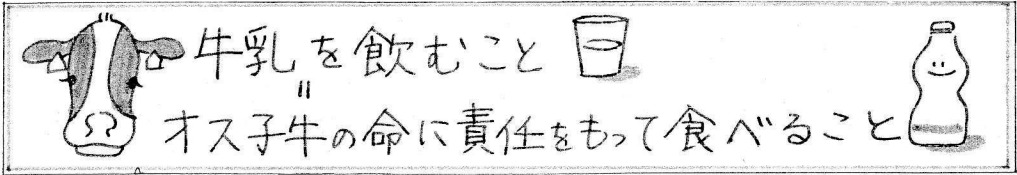 牛乳を飲むこと
=
オス子牛の命に責任をもって食べること